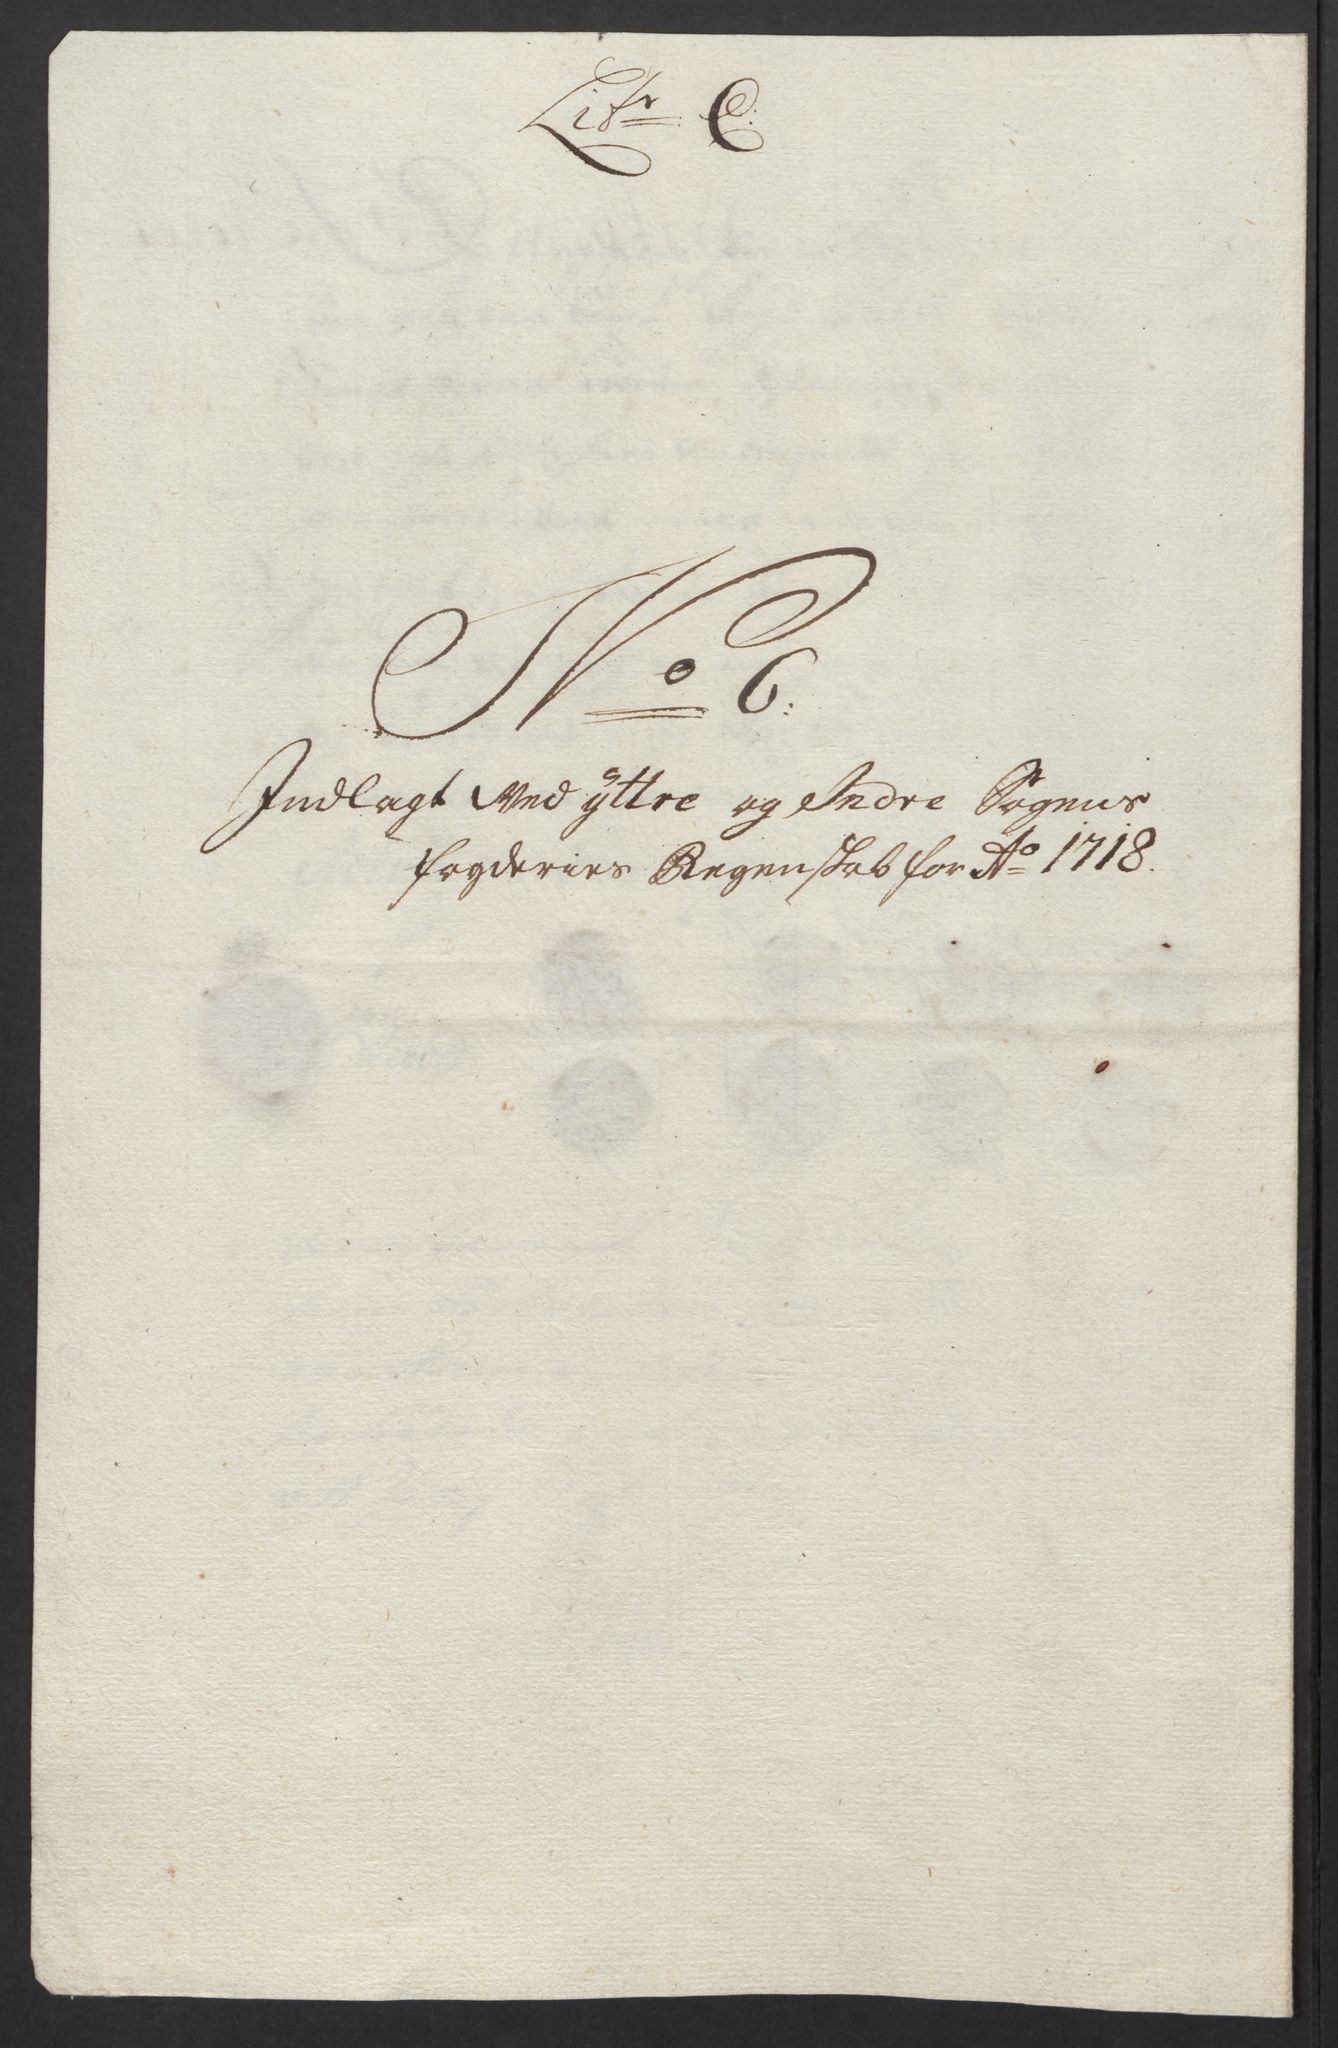 Litr C:
No 6:
Indlagt Ved ÿttre og Indre Sogens
fogderies Regenskab for Ao 1718.